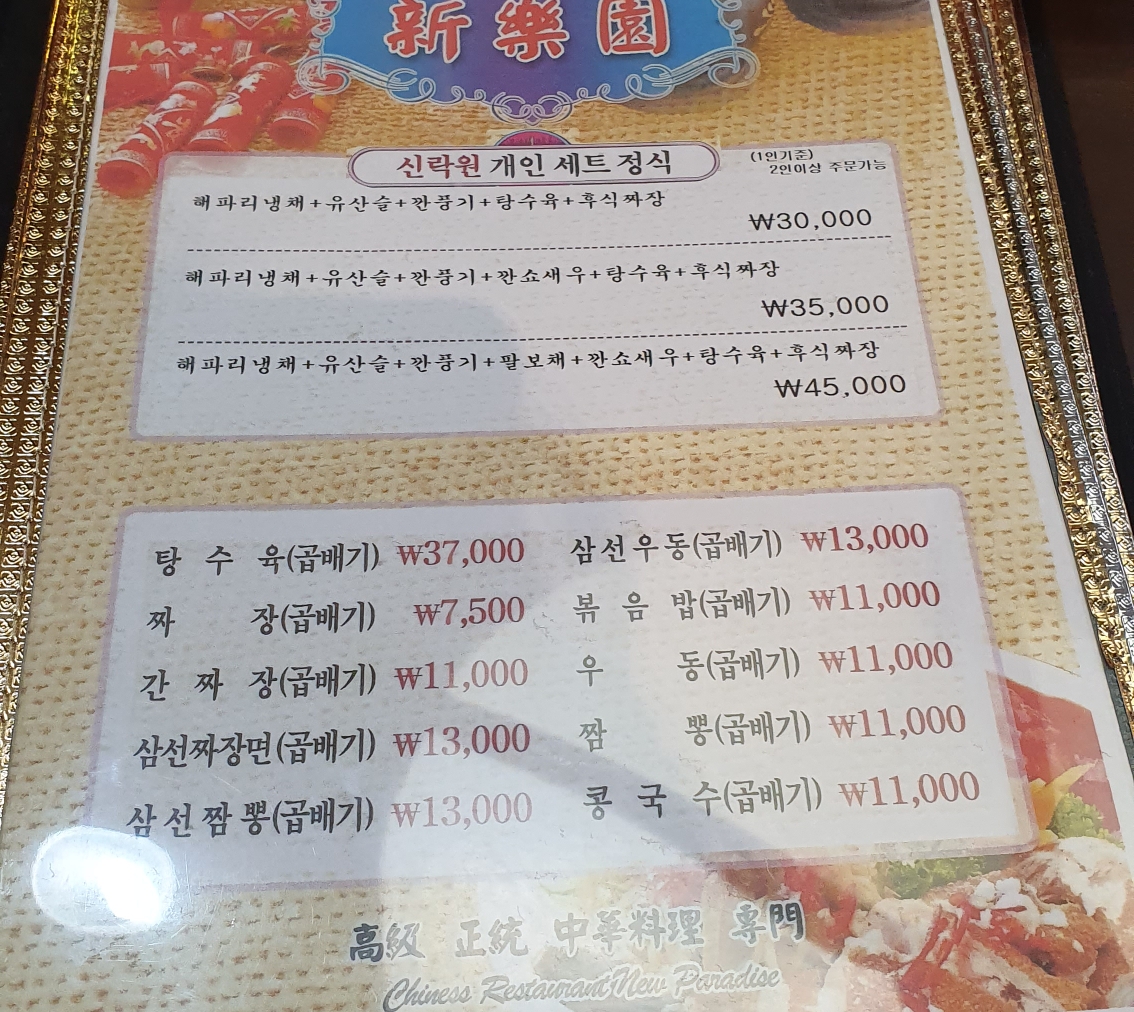 新樂園
신락원 개인 세트 정식
(1인기준)
2인이상 주문가능
해파리냉채+유산슬+깐풍기+탕수육+후식짜장
₩30,000
해파리냉채+유산슬+깐풍기+깐쇼새우+탕수육+후식짜장
₩35,000
해파리냉채+유산슬+깐풍기+팔보채+깐쇼새우+탕수육+후식짜장
₩45,000
탕수육(곱배기) ₩37,000
짜장(곱배기) ₩7,500
간짜장(곱배기) ₩11,000
삼선짜장면(곱배기) ₩13,000
삼선짬뽕(곱배기) ₩13,000
삼선우동(곱배기) ₩13,000
볶음밥(곱배기) ₩11,000
우동(곱배기) ₩11,000
짬뽕(곱배기) ₩11,000
콩국수(곱배기) ₩11,000
高級 正統 中華料理 專門
Chiness Restaurant New Paradise